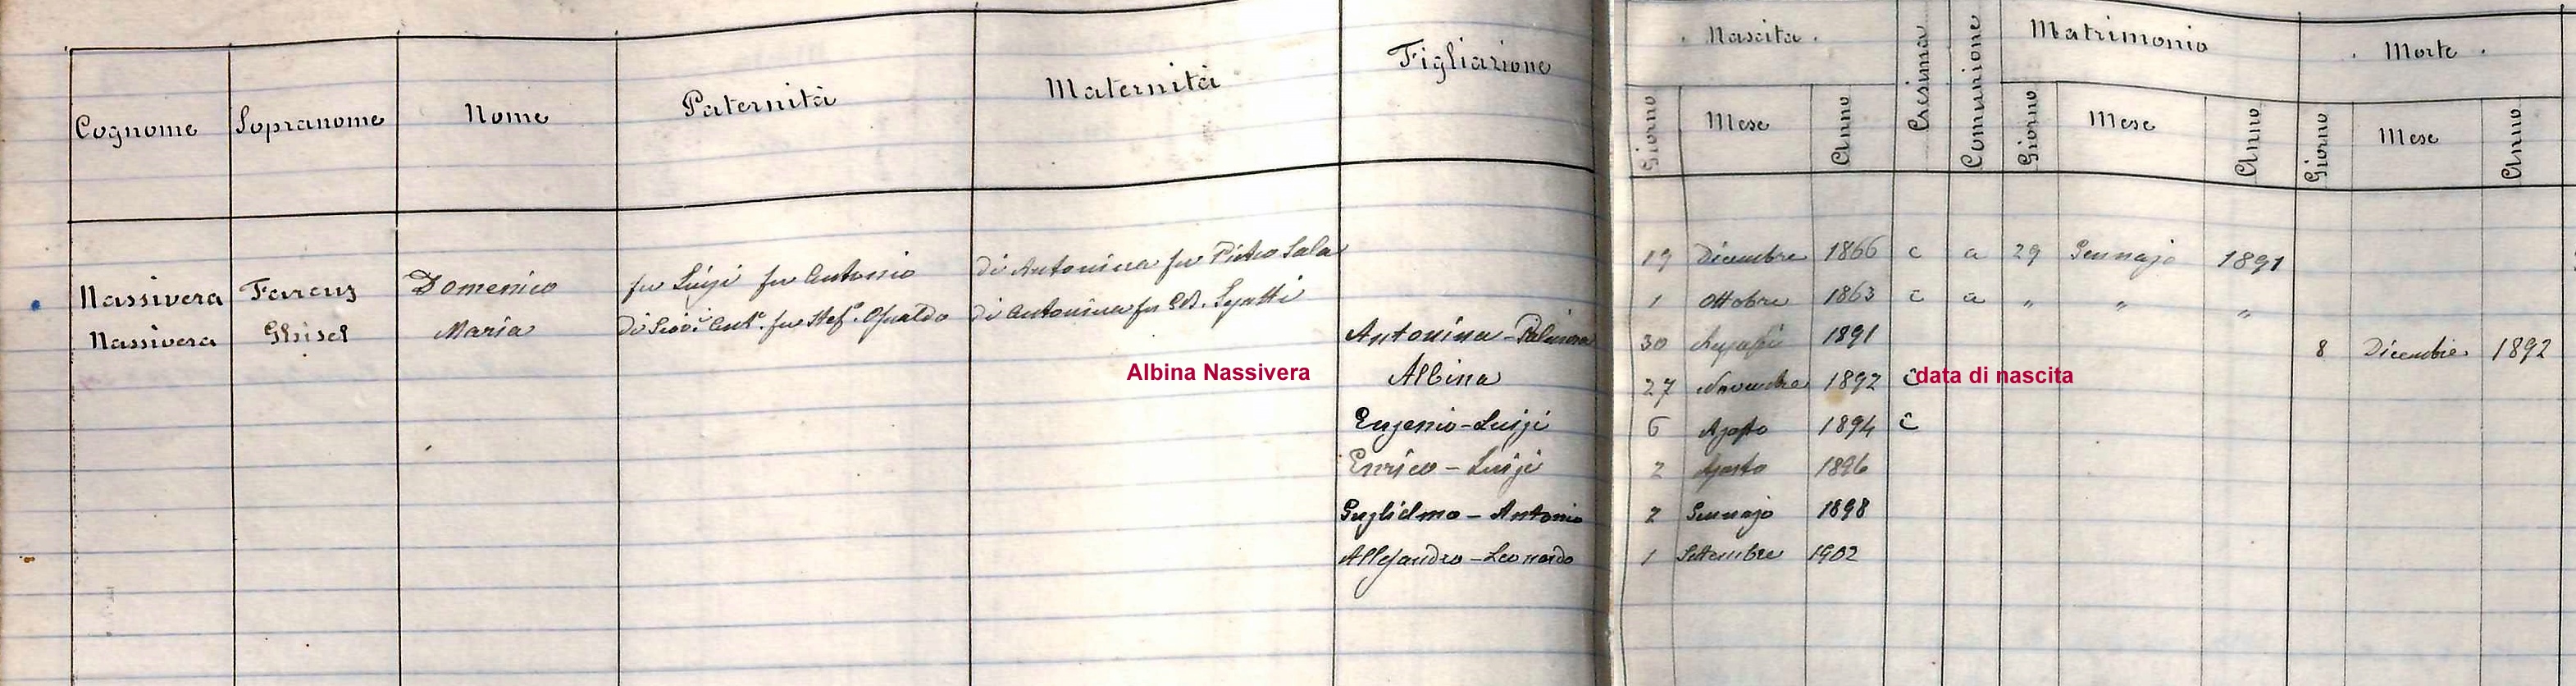 Cognome Sopranome Nome Paternità Maternità Figliazione Nascita Cresima Comunione Matrimonio Morte
Giorno Mese Anno Giorno Mese Anno Giorno Mese Anno
Nassivera Domenico fu Luigi fu Antonio di Antonina fu Pietro Sala 19 Dicembre 1866 c a 29 Gennajo 1891
Nassivera Ghisel Maria di Antonina fu 1 Ottobre 1863 c a " " "
Antonina - 30 1891 8 Dicembre 1892
Albina Nassivera Albina 27 Novembre 1892 c data di nascita
Eugenio - Luigi 6 Agosto 1894 c
Enrico - Luigi 2 Agosto 1896
Guglielmo - Antonio 2 Gennajo 1898
Leonardo 1 Settembre 1902